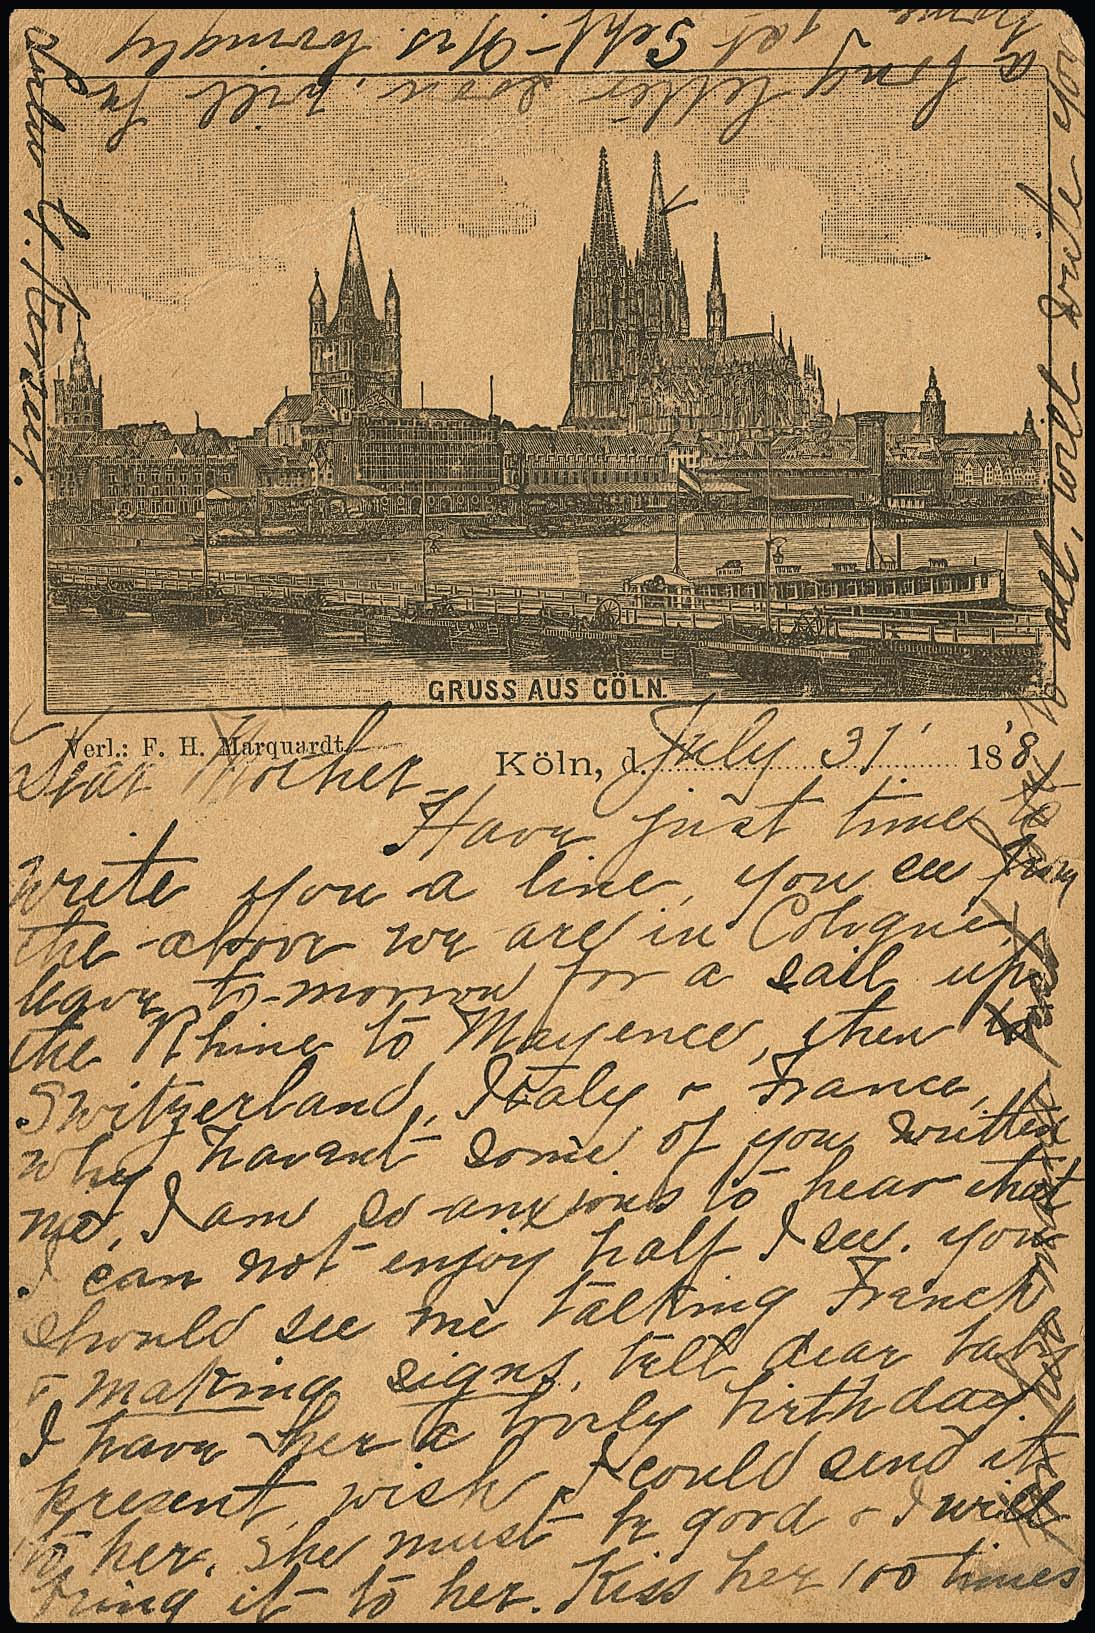 GRUSS AUS CÖLN.
Verl.: F. H. Marquardt.
Köln, d. July 31' 18'8
Dear Mother -
Have just time to
write you a line, you see from
the above we are in Cologne,
leave to-morrow for a sail up
the Rhine to Mayence, then to
Switzerland, Italy & France,
why havent some of you written
me, I am so anxious to hear that
I can not enjoy half I see. you
should see me talking French
& making signs, tell dear baby
I have her a lovely birthday
present, wish I could send it
to her. She must be good & I will
bring it to her. Kiss her 100 times
to all, will write you
a long letter soon, will be
home 1st Sept - Yrs. lovingly